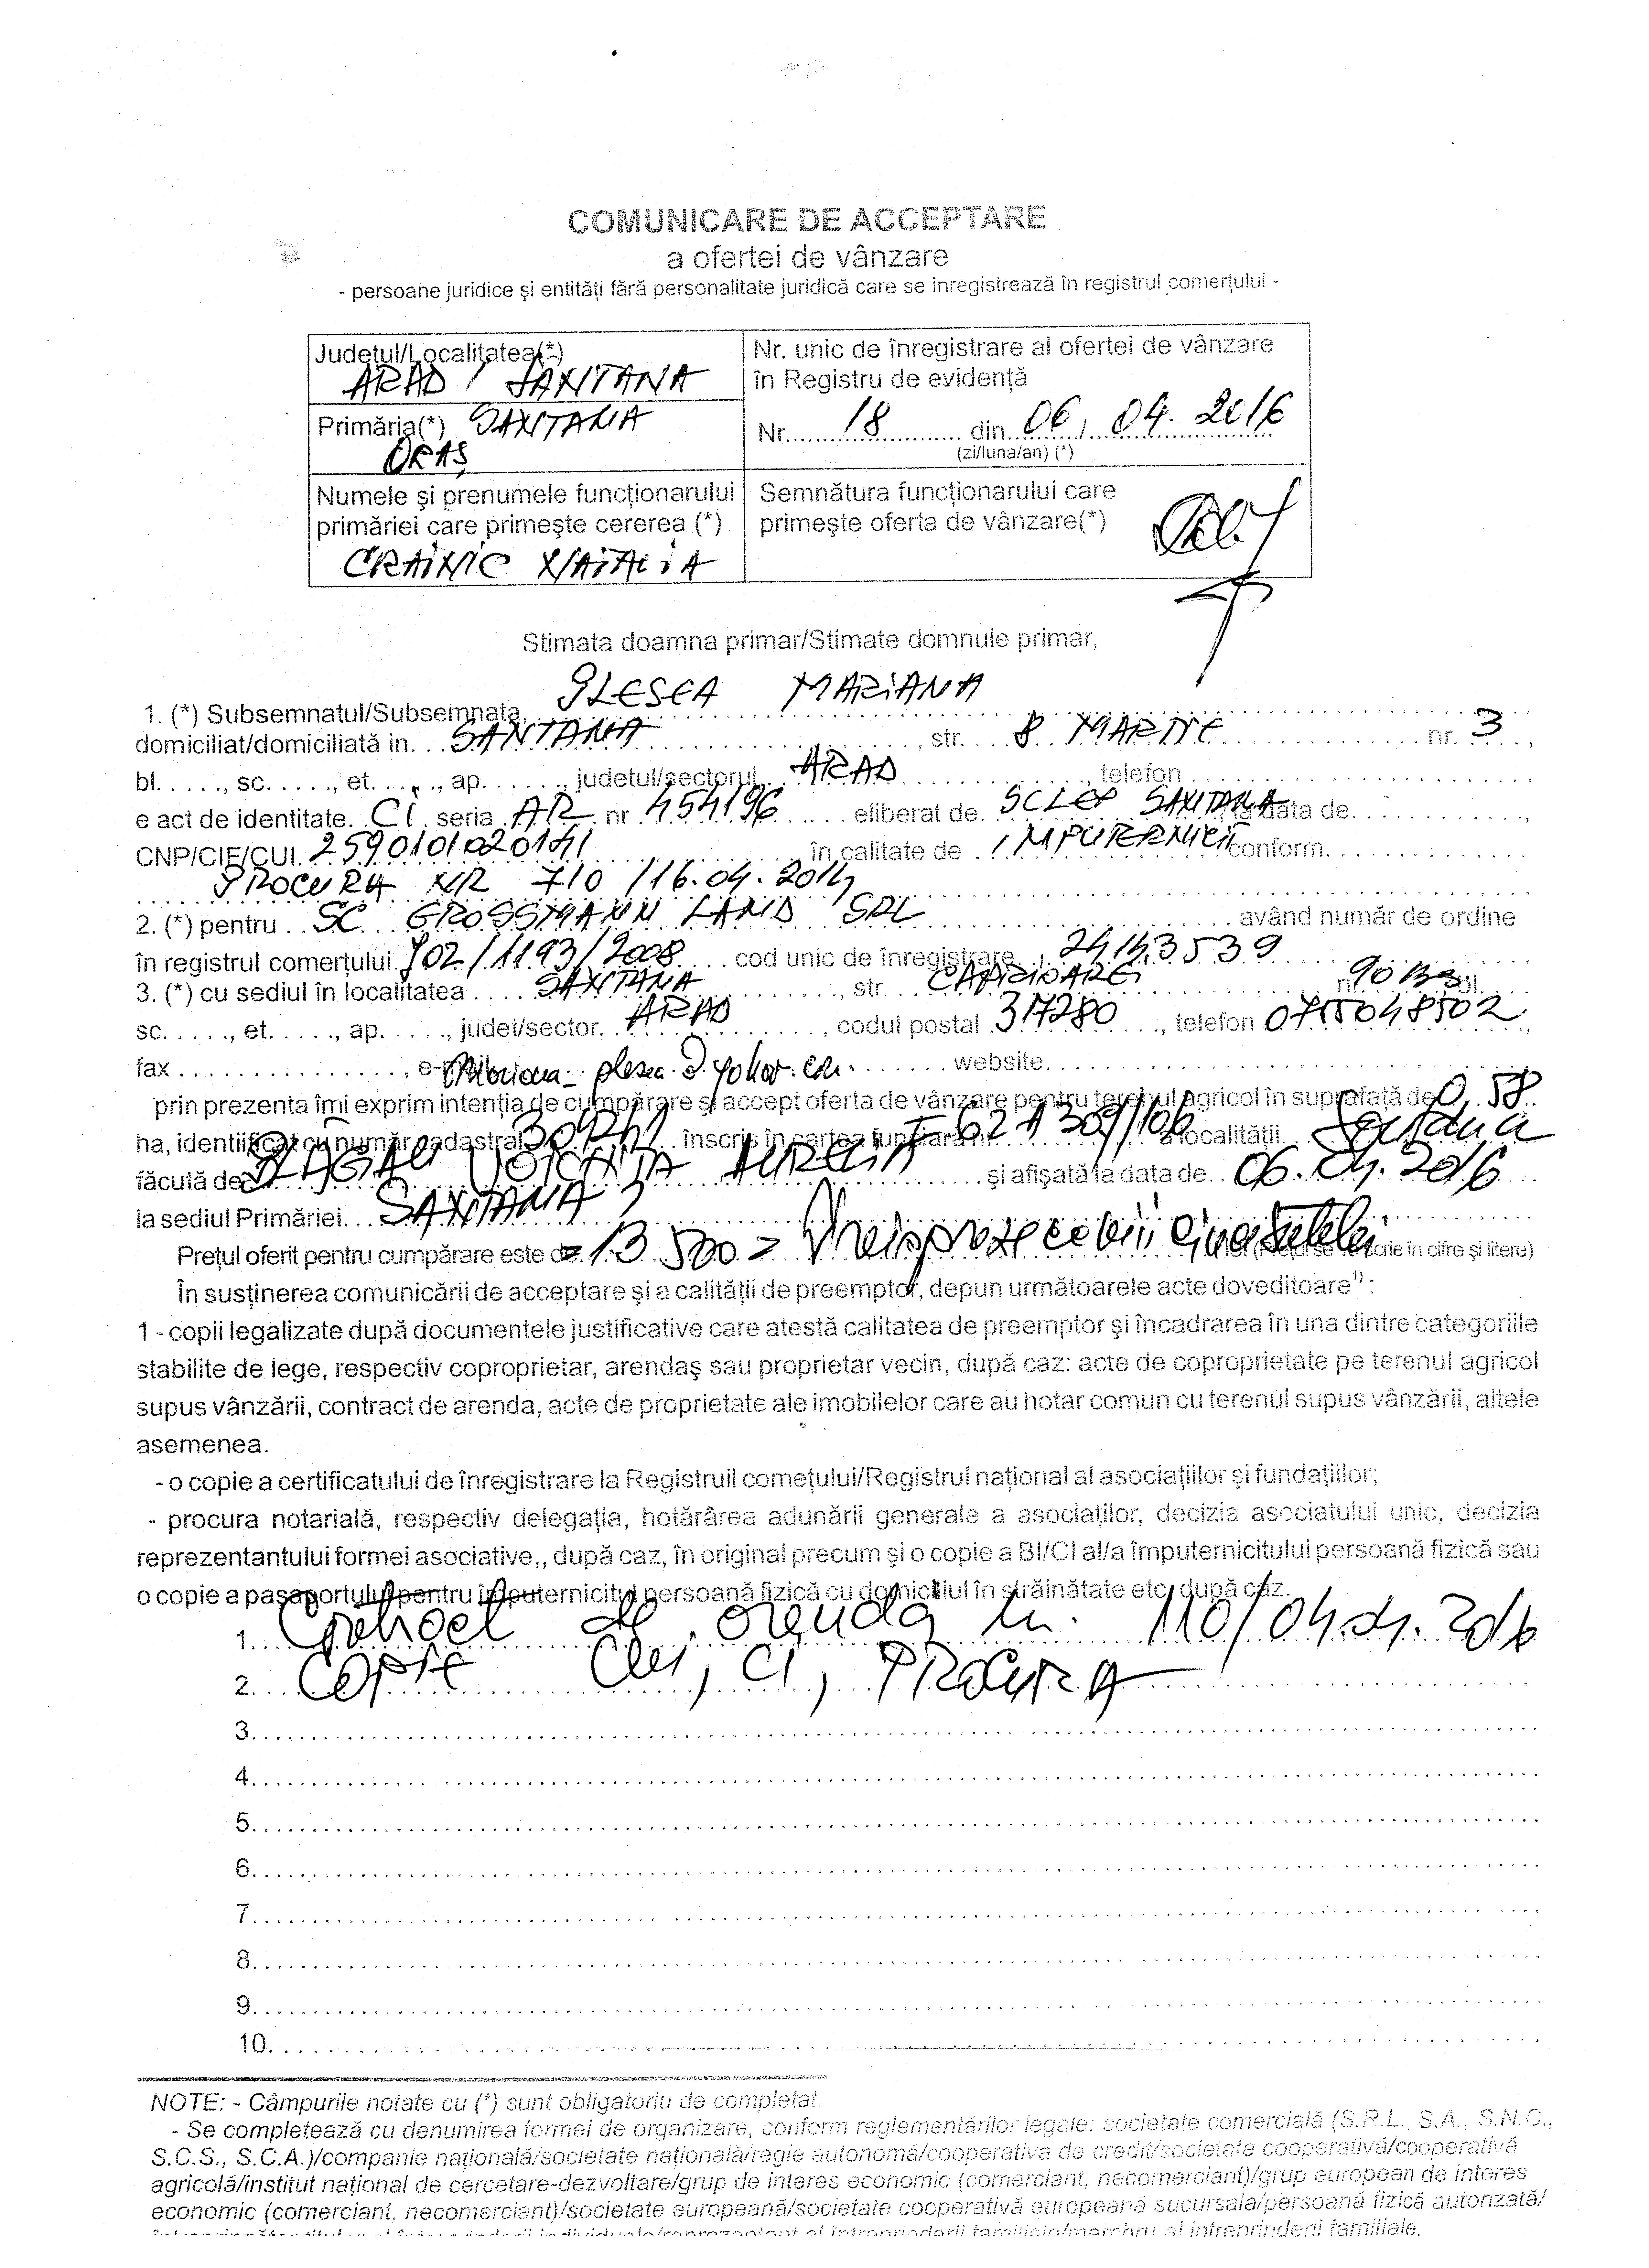 COMUNICARE DE ACCEPTARE
a ofertei de vânzare
- persoane juridice şi entităţi fără personalitate juridică care se inregistrează în registrul comerţului -
Judeţul/Localitatea(*)
ARAD / SANTANA
Nr. unic de înregistrare al ofertei de vânzare
în Registru de evidenţă
Primăria(*) SANTANA
ORAŞ
Nr. 18 din 06.04.2016
(zi/luna/an) (*)
Numele şi prenumele funcţionarului
primăriei care primeşte cererea (*)
CRAINIC NATALIA
Semnătura funcţionarului care
primeşte oferta de vânzare(*)
Stimata doamna primar/Stimate domnule primar,
PLESEA MARIANA
1. (*) Subsemnatul/Subsemnata,
domiciliat/domiciliată in... SANTANA, str. 8 MARTIE nr. 3,
bl....., sc....., et....., ap....., judetul/sectorul ARAD, telefon
e act de identitate. CI seria AR nr 454196 eliberat de SCLEP SANTANA la data de.............,
CNP/CIF/CUI. 2590101020141 în calitate de IMPUTERNICIT conform.............
PROCURA NR 710 /16.04.2014
2. (*) pentru SC GROSSMANN LAND SRL având număr de ordine
în registrul comerţului J02/1193/2008 cod unic de înregistrare 24143539
3. (*) cu sediul în localitatea SANTANA, str. nr.
sc....., et....., ap....., judet/sector. ARAD, codul postal 317280, telefon 0755048502,
fax ................, e-mail website.
prin prezenta îmi exprim intenţia de cumpărare şi accept oferta de vânzare pentru terenul agricol în suprafaţă de 0,58
ha, identificat cu număr cadastral înscris în cartea funciară nr. a localităţii Santana
făcută de AURELIA şi afişată la data de 06.04.2016
la sediul Primăriei SANTANA
Preţul oferit pentru cumpărare este de = 13 500 = Treisprezecemii cincisutelei
În susţinerea comunicării de acceptare şi a calităţii de preemptor, depun următoarele acte doveditoare¹⁾ :
1 - copii legalizate după documentele justificative care atestă calitatea de preemptor şi încadrarea în una dintre categoriile
stabilite de lege, respectiv coproprietar, arendaş sau proprietar vecin, după caz: acte de coproprietate pe terenul agricol
supus vânzării, contract de arenda, acte de proprietate ale imobilelor care au hotar comun cu terenul supus vânzării, altele
asemenea.
- o copie a certificatului de înregistrare la Registruil comeţului/Registrul naţional al asociaţiilor şi fundaţiilor;
- procura notarială, respectiv delegaţia, hotărârea adunării generale a asociaţilor, decizia asociatului unic, decizia
reprezentantului formei asociative,, după caz, în original precum şi o copie a BI/CI al/a împuternicitului persoană fizică sau
o copie a paşaportului pentru împuternicitul persoană fizică cu domiciliul în străinătate etc, după caz.
1. Contract de arenda nr. 110/04.04.2016
2. COPIE CUI, CI, PROCURA
3.
4.
5.
6.
7.
8.
9.
10.
NOTE: - Câmpurile notate cu (*) sunt obligatoriu de completat.
- Se completează cu denumirea formei de organizare, conform reglementărilor legale: societate comercială (S.R.L., S.A., S.N.C.,
S.C.S., S.C.A.)/companie naţională/societate naţională/regie autonomă/cooperativa de credit/societate cooperativă/cooperativă
agricolă/institut naţional de cercetare-dezvoltare/grup de interes economic (comerciant, necomerciant)/grup european de interes
economic (comerciant, necomerciant)/societate europeană/societate cooperativă europeană sucursala/persoană fizică autorizată/